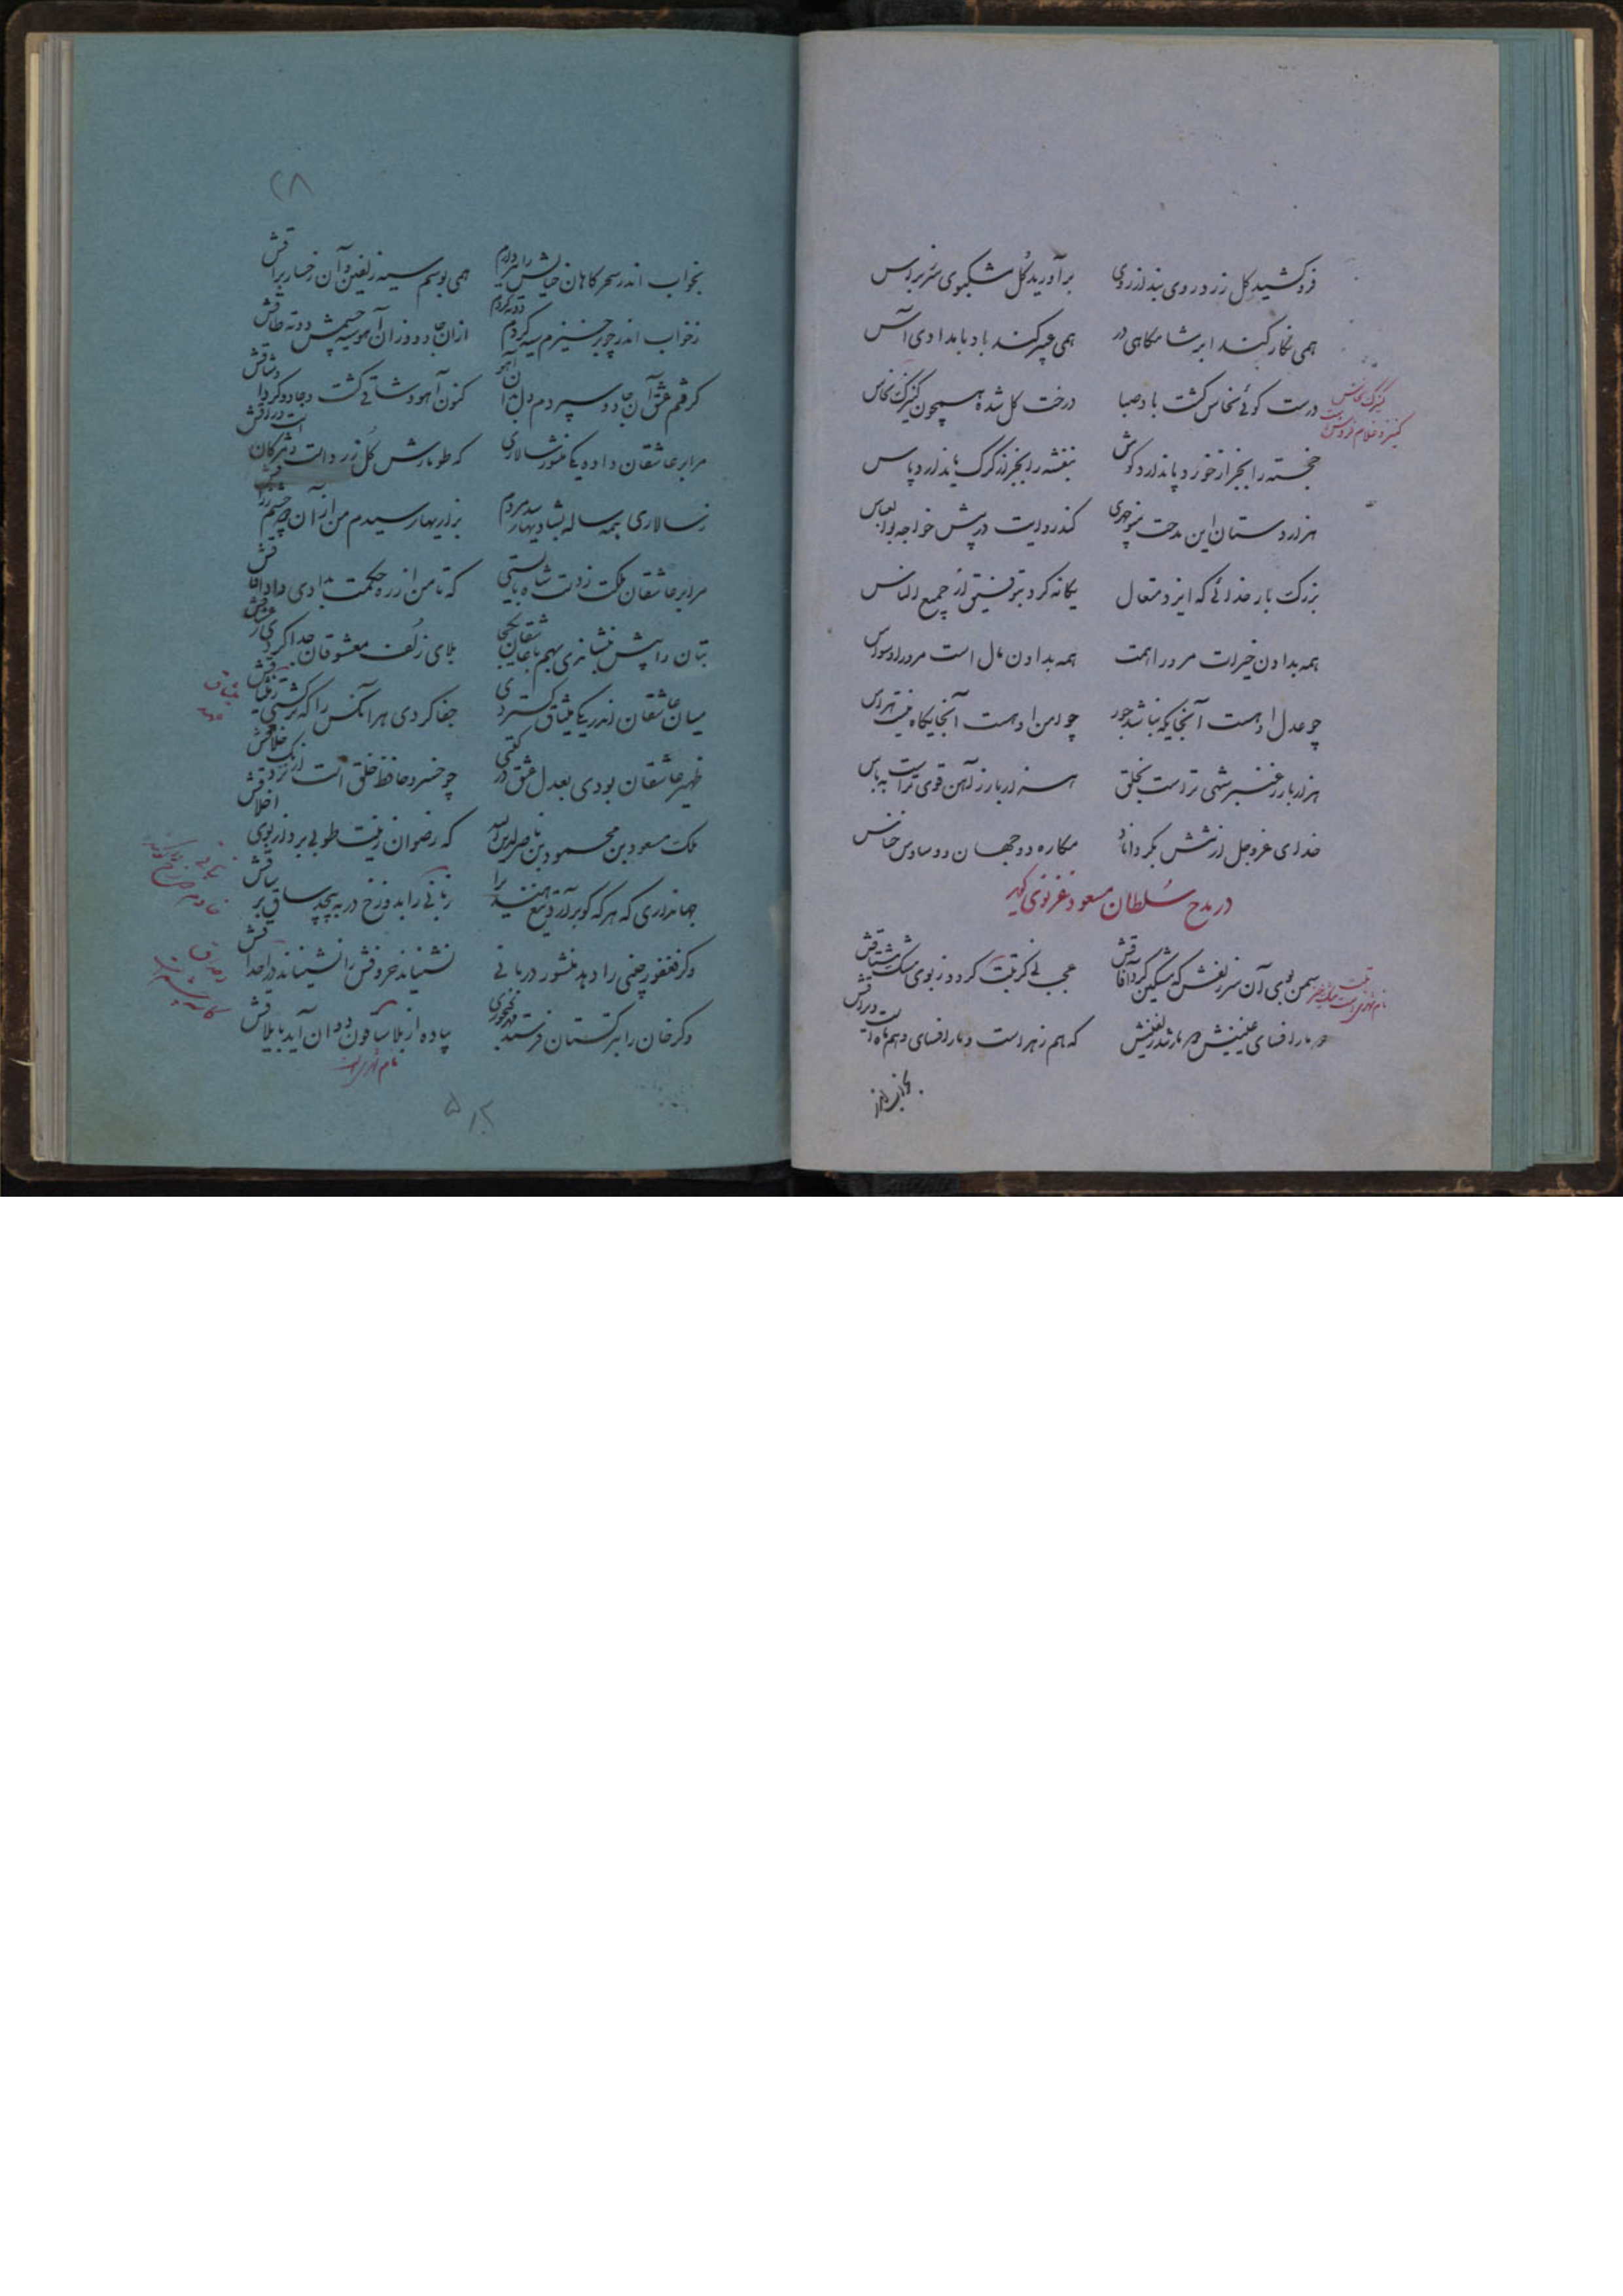 فروکشید گل زرد روی بند از روی
برآورید گل مشکبوی سر ز تراس
همی نگار کند ابر شامگاهی در
همی عبیر کند باد بامدادی آس
درست گوئی نخاس گشت باد صبا
درخت گل شده همچون کنیزک نخاس
کنیزک نخاس
کنیز و غلام فروش است
خجسته را بجز از خورد پا ندارد گوش
بنفشه را بجز از کرک پا ندارد پاس
هزاردستان این مدحت منوچهری
کند روایت در پیش خواجه بوالعباس
بزرگ بار خدائی که ایزد متعال
یگانه کرد بتوفیق از جمیع الناس
همه بدادن خیرات مر ورا همت
همه بدادن مال است مر ورا وسواس
چو عدل او هست آنجایگه نباشد جور
چو امن او هست آنجایگاه نیست هراس
هزار بار ز عنبر شهی تر است بخلق
هزار بار ز آهن قوی تر است به باس
خدای عزوجل از تنش بگرداناد
مکاره دوجهان و وساوس خناس
در مدح سلطان مسعود غزنوی گوید
سمن بوی آن سر زلفش که مشکین کرد آفاقش
عجب نی گر تبت گردد ز بوی مشک مشتاقش
تبت نام شهری است
دو مار افسای عینینش دو مارند زلفینش
که هم زهر است
بخواب اندر
۲۸
بخواب اندر سحرگاهان خیالش را ببر دارم
همی بوسم سیه زلفین و آن رخسار براقش
ز خواب اندر چو برخیزم سیه گردم دوته گردم
از آن جادو وز آن آهو سیه چشمش دوته طاقش
گرفتم عشق آن جادو سپردم دل بآن آهو
کنون آهو وشاقی گشت و جادو کرد اوشاقش
مرا بر عاشقان داده یکی منشور سالاری
که طومارش گل زرد است و مژگان است وراقش
ز سالاری همه ساله بشادی بهار مردم
مرا بر عاشقان ملکت ز دست شاه بایستی
که تا من از ره حکمت بدادی داد عشاقش
بتان را پیش بنشاندی بهم با عاشقان یکجا
بلای زلف معشوقان جدا کردی ز
میان عاشقان اندر یکی میثاق گستردی
جفا کردی هر آنکس را که برگشتی ز میثاقش
میثاق عهد
ظهیر عاشقان بودی بعدل عشق در گفتی
چو خسرو حافظ خلق است از یزدان خلاقش
ملک مسعود بن محمود بن ناصر لدین الله
که رضوان زینت طوبی برد از بوی اخلاقش
جهانداری که هرگه کو برآرد تیغ هندی را
زبانی را بدوزخ در به پیچد ساق بر ساقش
وگر فغفور چینی را دهد منشور دربانی
وگر خان را بترکستان فرستد مهر گنجوری
پیاده از بلاساقون دوان آید بایلاقش
نام شهری است